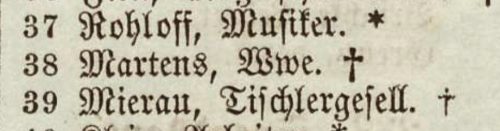 37 Rohloff, Musiker. *
38 Martens, Wwe. †
39 Mierau, Tischlergesell. †